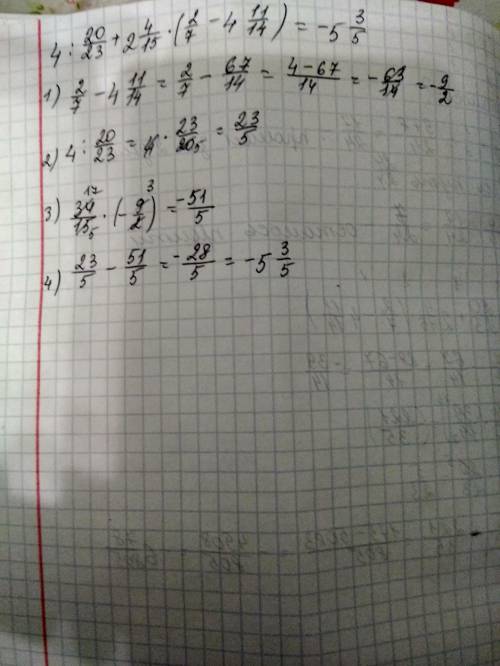 4 : 20/23 + 2 4/15 · (2/7 - 4 11/14) = -5 3/5
1) 2/7 - 4 11/14 = 2/7 - 67/14 = 4-67/14 = -63/14 = -9/2
2) 4 : 20/23 = 4 · 23/20 5 = 23/5
3) 34 17/15 5 · (-9 3/2) = -51/5
4) 23/5 - 51/5 = -28/5 = -5 3/5